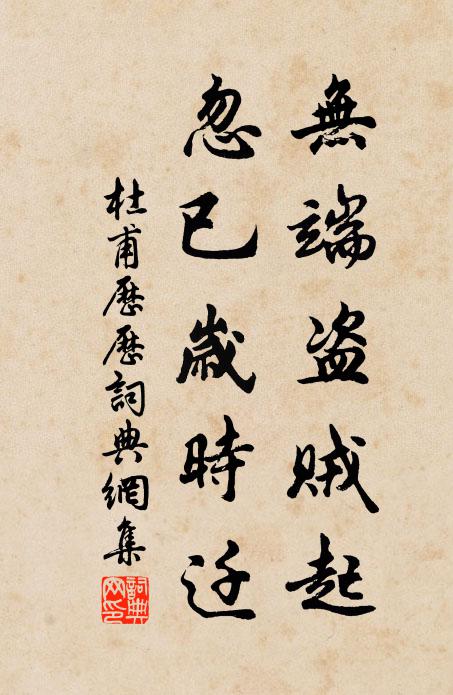 無端盗賊起
忽已歲時迁
杜甫歷歷詞典網集
詞典网印